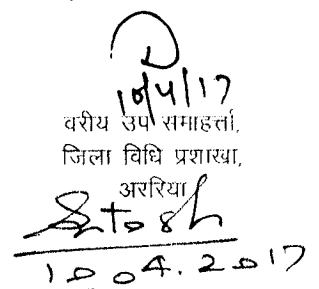 10/4/17
वरीय उप समाहर्त्ता,
जिला विधि प्रशाखा,
अररिया
Santosh
10.04.2017